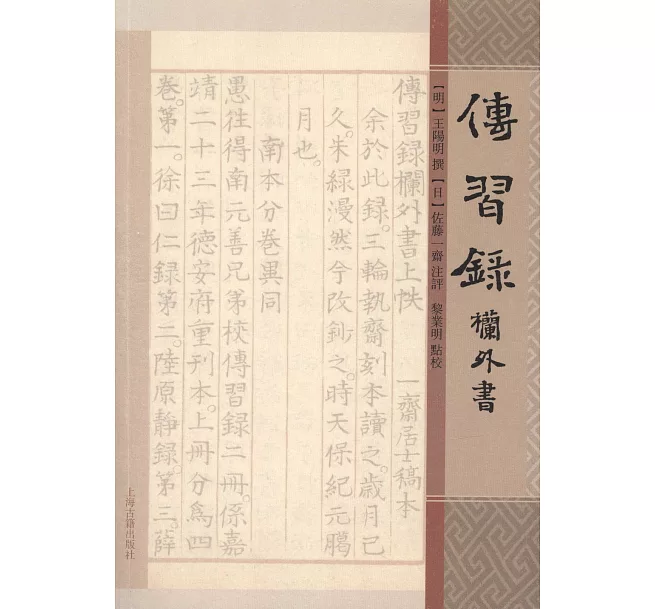 傳習録
欄外書
【明】王陽明 撰 【日】佐藤一齋 注評 黎業明 點校
傳習録欄外書上帙 一齋居士稿本
余於此録。三輪執齋刻本讀之。歲月已
久。朱緑漫然今改鈔之。時天保紀元臈
月也。
南本分卷異同
愚徃得南元善兄弟校傳習録二冊。係嘉
靖二十三年德安府重刊本。上冊分為四
卷。第一。徐曰仁録第二。陸原静録。第三。薛
上海古籍出版社